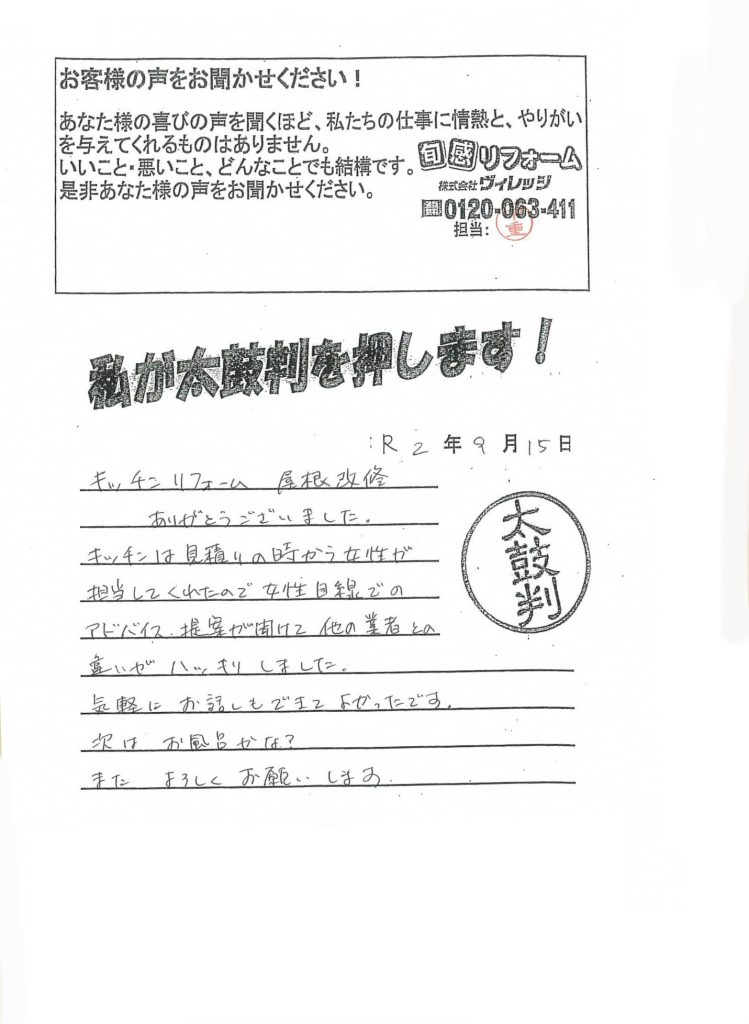 お客様の声をお聞かせください！
あなた様の喜びの声を聞くほど、私たちの仕事に情熱と、やりがい
を与えてくれるものはありません。
いいこと・悪いこと、どんなことでも結構です。
是非あなた様の声をお聞かせください。
旬感リフォーム
株式会社ヴィレッジ
0120-063-411
担当:
重
私が太鼓判を押します！
:R 2 年 9 月 15 日
キッチンリフォーム 屋根改修
ありがとうございました。
キッチンは見積りの時から女性が
担当してくれたので女性目線での
アドバイス、提案が聞けて他の業者との
違いがハッキリしました。
気軽にお話しもできてよかったです。
次はお風呂かな?
またよろしくお願いします。
太鼓判